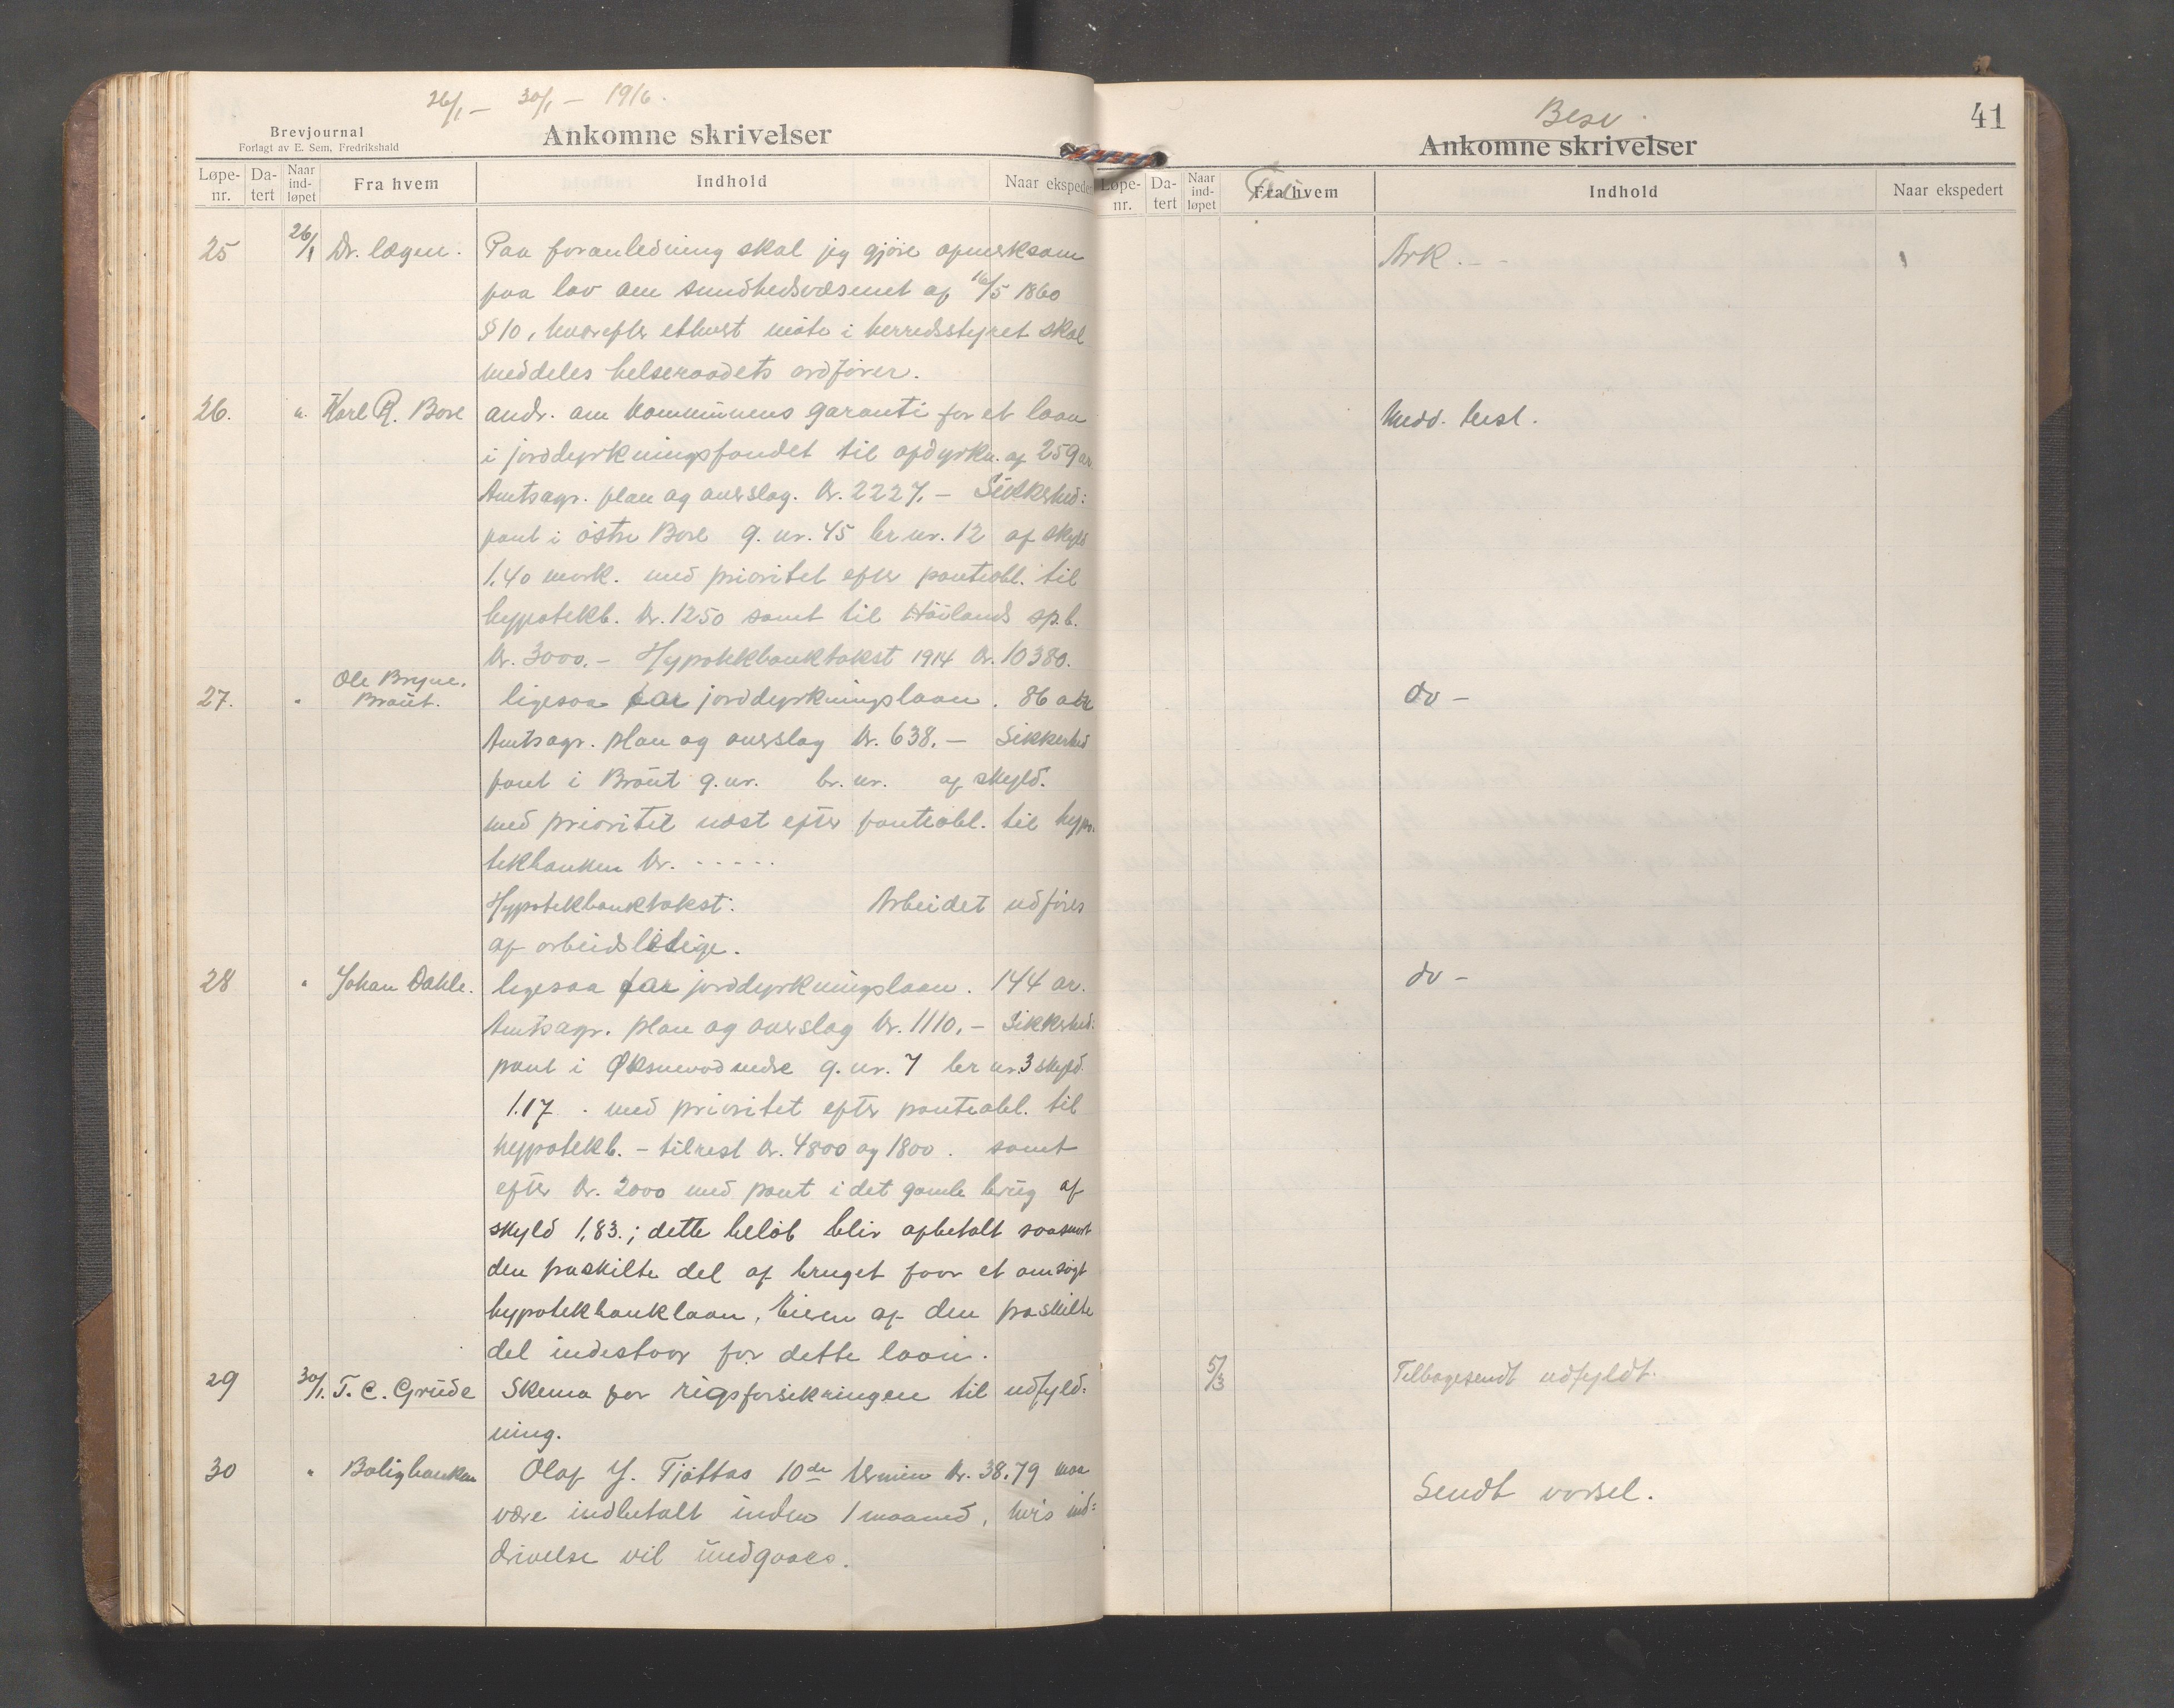 26/1 – 30/1 – 1916.
Brevjournal
Forlagt av E. Sem, Fredrikshald
Ankomne skrivelser
Løpe-nr. Da-tert Naar ind-løpet Fra hvem Indhold Naar ekspedert
25 26/1 Dr. lægen. Paa foranledning skal jeg gjøre opmerksom
paa lov om sundhedsvæsenet af 16/5 1860
§ 10, hvorefter ethvert møte i herredsstyret skal
meddeles helseraadets ordfører.
26. " Karl R. Bore andr. om kommunens garanti for et laan
i jorddyrkningsfondet til opdyrkn. af 259 ar
Amtsagr. plan og overslag. kr. 2227.– Sikkerhed:
pant i østre Bore g. nr. 45 br nr. 12 af skyld
1.40 mark. med prioritet efter panteobl. til
hypotekb. kr. 1250 samt til Høilands sp.b.
kr. 3000.– Hypotekbanktakst 1914 kr. 10380.
27. " Ole Bryne,
Braut. ligesaa om jorddyrkningslaan. 86 ar
Amtsagr. plan og overslag kr. 638.– Sikkerhed
pant i Braut g. nr. br. nr. af skyld.
med prioritet næst efter panteobl. til hypo-
tekbanken kr. - - - - -
Hypotekbanktakst. Arbeidet udføres
af arbeidsledige.
28 " Johan Dahle. ligesaa om jorddyrkningslaan. 144 ar.
Amtsagr. plan og overslag kr. 1110.– Sikkerhed:
pant i Øksnevad nedre g. nr. 7 br nr. 3 skyld.
1.17 . med prioritet efter panteobl. til
hypotekb. – tilrest kr. 4800 og 1800. samt
efter kr. 2000 med pant i det gamle brug af
skyld 1,83.; dette beløb blir opbetalt saasnart
den fraskilte del af bruget faar et omsøgt
hypotekbanklaan. Eieren af den fraskilte
del indestaar for dette laan.
29 30/1. T. C. Grude Skema for rigsforsikringen til udfyld=
ning.
30 " Boligbanken Olaf J. Tjøttas 10de termin kr. 38.79 maa
være indbetalt inden 1 maaned, hvis ind=
drivelse vil undgaaes.
41
Besv.
Ankomne skrivelser
Løpe-nr. Da-tert Naar ind-løpet Fra hvem Indhold Naar ekspedert
Til
Ark. – –
Medd. besl.
do –
do –
5/3 Tilbagesendt udfyldt.
Sendt varsel.